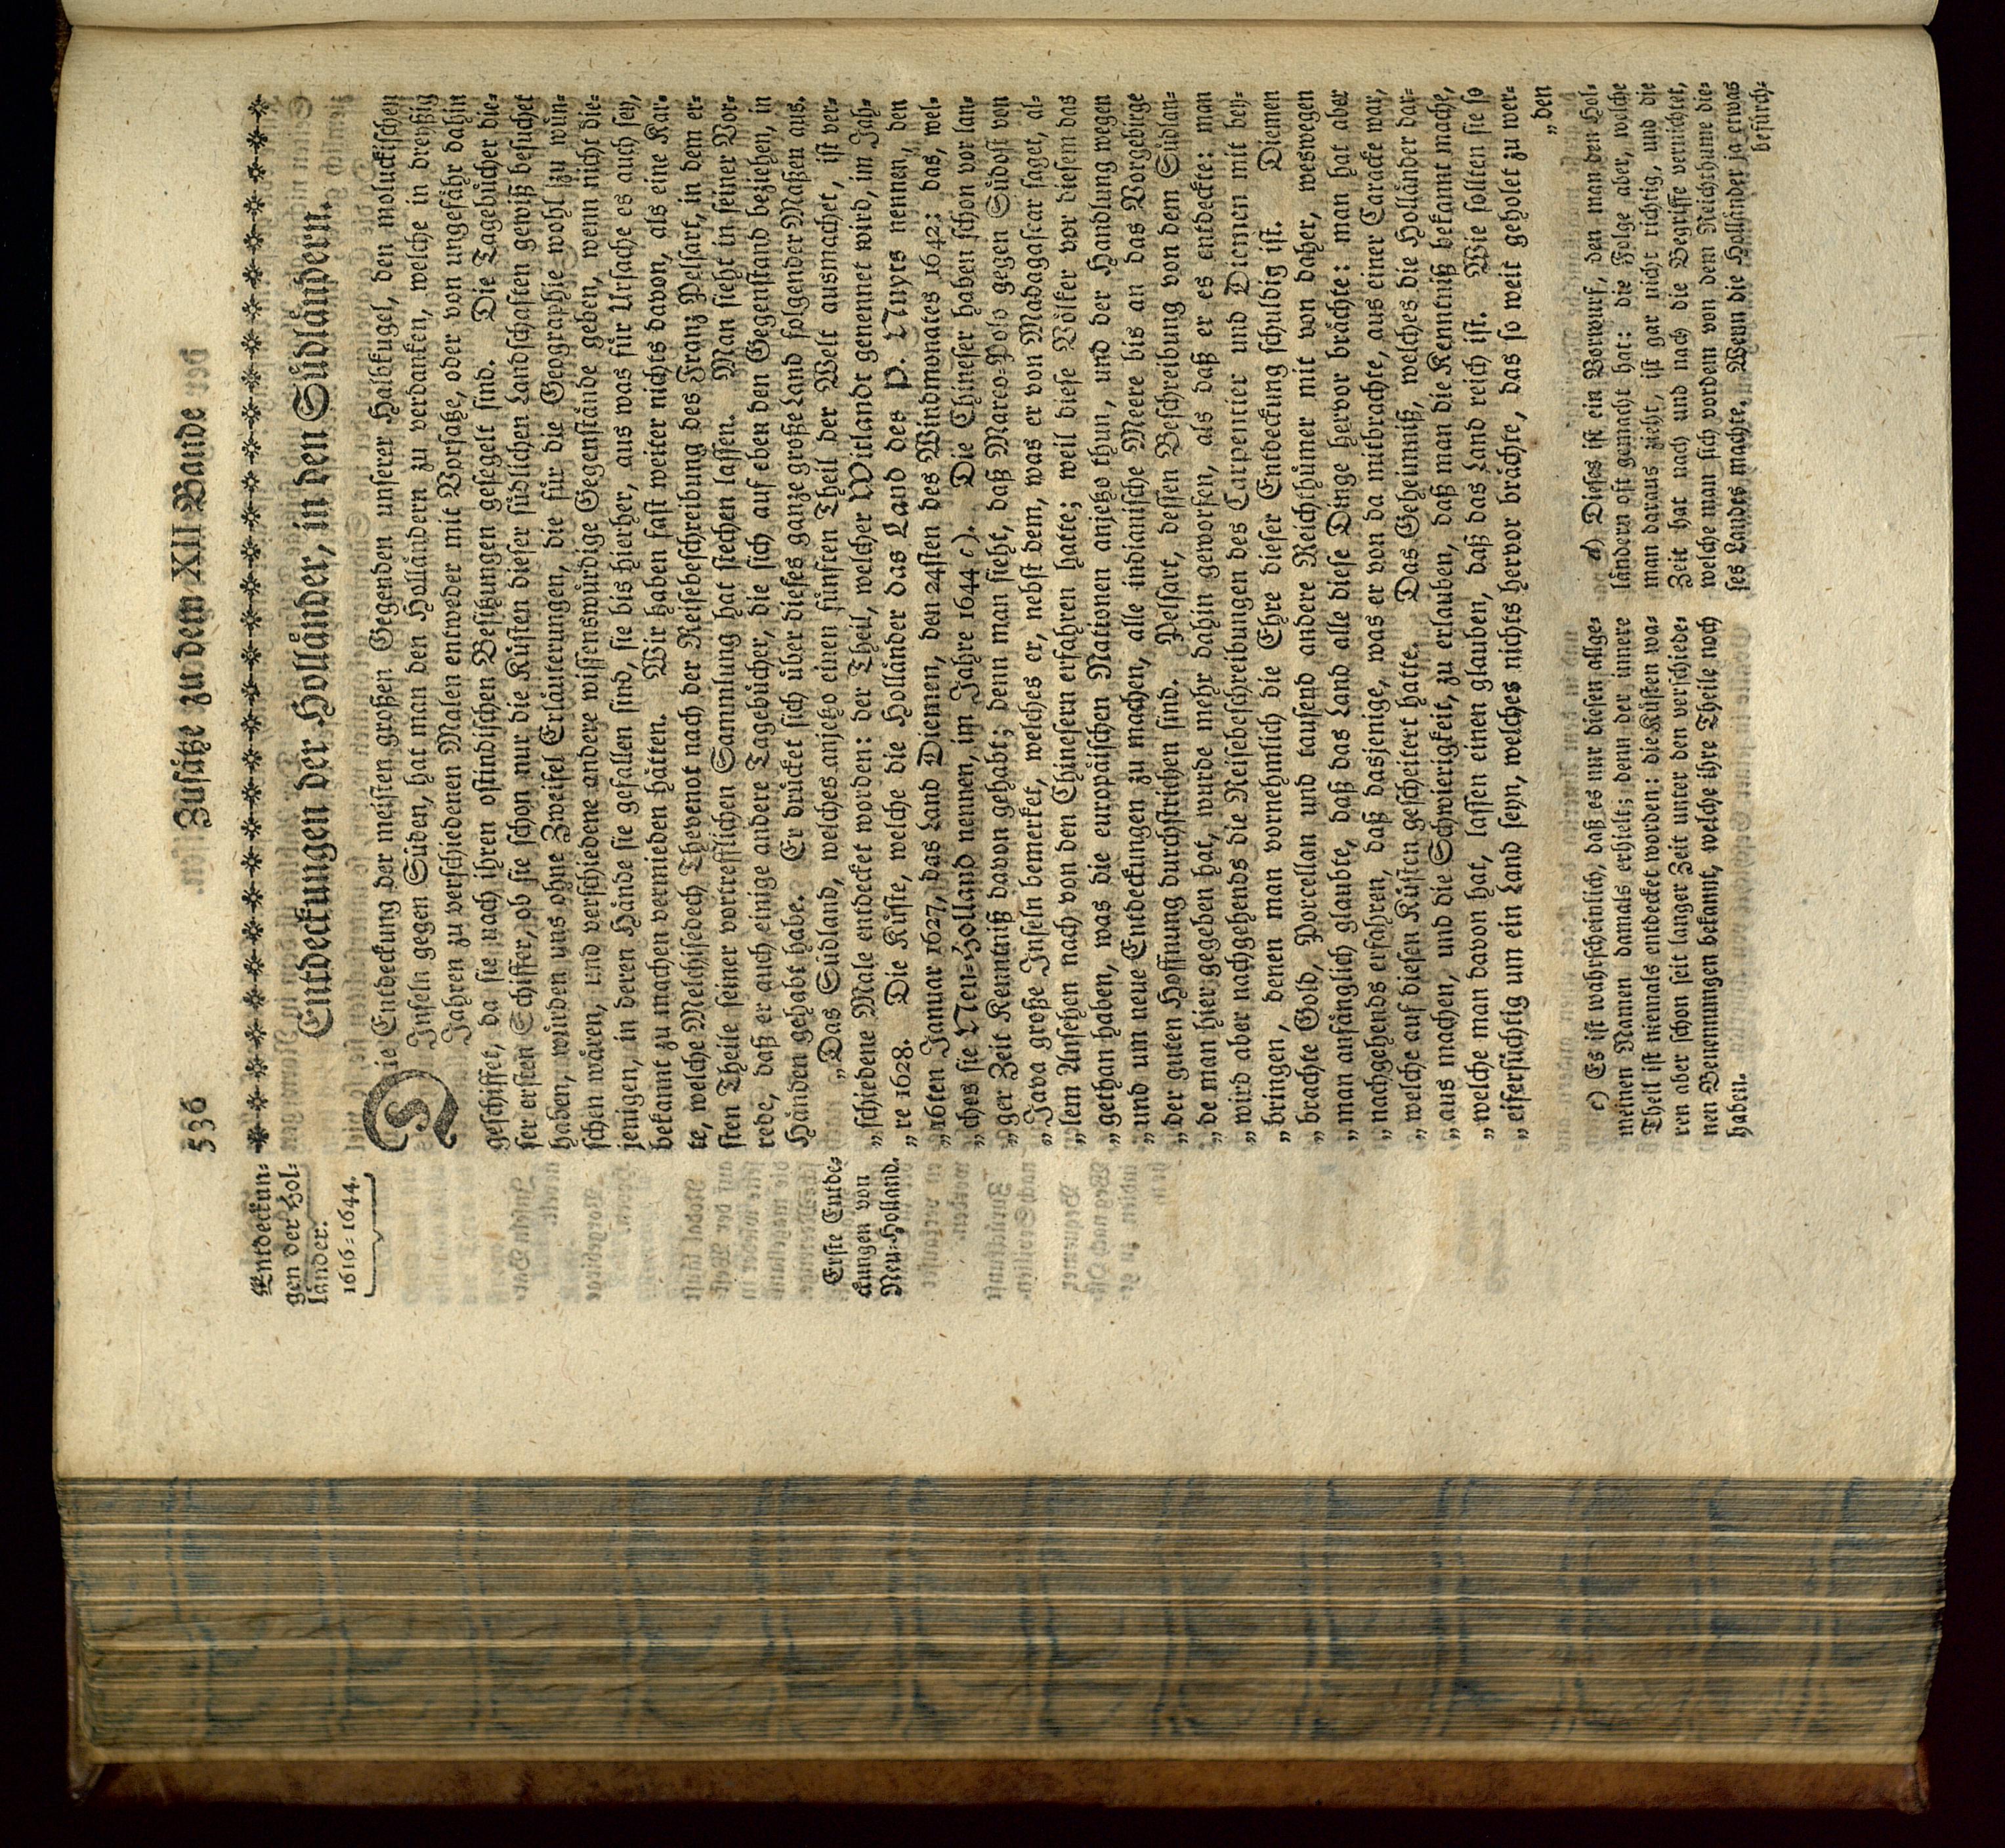 536 Zusätze zu dem XII Bande
Entdeckun⸗
gen der Hol⸗
länder.
1616⸗1644.
Entdeckungen der Holländer, in den Südländern.
Die Entdeckung der meisten großen Gegenden unserer Halbkugel, den moluckischen
Inseln gegen Süden, hat man den Holländern zu verdanken, welche in dreyßig
Jahren zu verschiedenen Malen entweder mit Vorsatze, oder von ungefähr dahin
geschiffet, da sie nach ihren ostindischen Besitzungen gesegelt sind. Die Tagebücher die⸗
ser ersten Schiffer, ob sie schon nur die Küsten dieser südlichen Landschaften gewiß besuchet
haben, würden uns ohne Zweifel Erläuterungen, die für die Geographie wohl zu wün⸗
schen wären, und verschiedene andere wissenswürdige Gegenstände geben, wenn nicht die⸗
jenigen, in deren Hände sie gefallen sind, sie bis hierher, aus was für Ursache es auch sey,
bekannt zu machen vermieden hätten. Wir haben fast weiter nichts davon, als eine Kar⸗
te, welche Melchisedech Thevenot nach der Reisebeschreibung des Franz Pelsart, in dem er⸗
sten Theile seiner vortrefflichen Sammlung hat stechen lassen. Man sieht in seiner Vor⸗
rede, daß er auch einige andere Tagebücher, die sich auf eben den Gegenstand beziehen, in
Händen gehabt habe. Er drücket sich über dieses ganze große Land folgender Maßen aus.
Erste Entde⸗
ckungen von
Neu⸗Holland.
„Das Südland, welches anjetzo einen fünften Theil der Welt ausmachet, ist ver⸗
„schiedene Male entdecket worden: der Theil, welcher Witlandt genennet wird, im Jah⸗
„re 1628. Die Küste, welche die Holländer das Land des P. Nuyts nennen, den
„16ten Januar 1627, das Land Diemen, den 24sten des Windmonates 1642: das, wel⸗
„ches sie Neu⸗Holland nennen, im Jahre 1644 c). Die Chineser haben schon vor lan⸗
„ger Zeit Kenntniß davon gehabt; denn man sieht, daß Marco⸗Polo gegen Südost von
„Java große Inseln bemerket, welches er, nebst dem, was er von Madagascar saget, al⸗
„lem Ansehen nach von den Chinesern erfahren hatte; weil diese Völker vor diesem das
„gethan haben, was die europäischen Nationen anjetzo thun, und der Handlung wegen
„und um neue Entdeckungen zu machen, alle indianische Meere bis an das Vorgebirge
„der guten Hoffnung durchstrichen sind. Pelsart, dessen Beschreibung von dem Südlan⸗
„de man hier gegeben hat, wurde mehr dahin geworfen, als daß er es entdeckte: man
„wird aber nachgehends die Reisebeschreibungen des Carpentier und Diemen mit bey⸗
„bringen, denen man vornehmlich die Ehre dieser Entdeckung schuldig ist. Diemen
„brachte Gold, Porcellan und tausend andere Reichthümer mit von daher, weswegen
„man anfänglich glaubte, daß das Land alle diese Dinge hervor brächte: man hat aber
„nachgehends erfahren, daß dasjenige, was er von da mitbrachte, aus einer Caracke war,
„welche auf diesen Küsten gescheitert hatte. Das Geheimniß, welches die Holländer dar⸗
„aus machen, und die Schwierigkeit, zu erlauben, daß man die Kenntniß bekannt mache,
„welche man davon hat, lassen einen glauben, daß das Land reich ist. Wie sollten sie so
„eifersüchtig um ein Land seyn, welches nichts hervor brächte, das so weit geholet zu wer⸗
„den
c) Es ist wahrscheinlich, daß es nur diesen allge⸗
meinen Namen damals erhielt; denn der innere
Theil ist niemals entdecket worden: die Küsten wa⸗
ren aber schon seit langer Zeit unter den verschiede⸗
nen Benennungen bekannt, welche ihre Theile noch
haben.
d) Dieses ist ein Vorwurf, den man den Hol⸗
ländern oft gemacht hat: die Folge aber, welche
man daraus zieht, ist gar nicht richtig, und die
Zeit hat nach und nach die Begriffe vernichtet,
welche man sich vordem von dem Reichthume die⸗
ses Landes machte. Wenn die Holländer ja etwas
befürch⸗